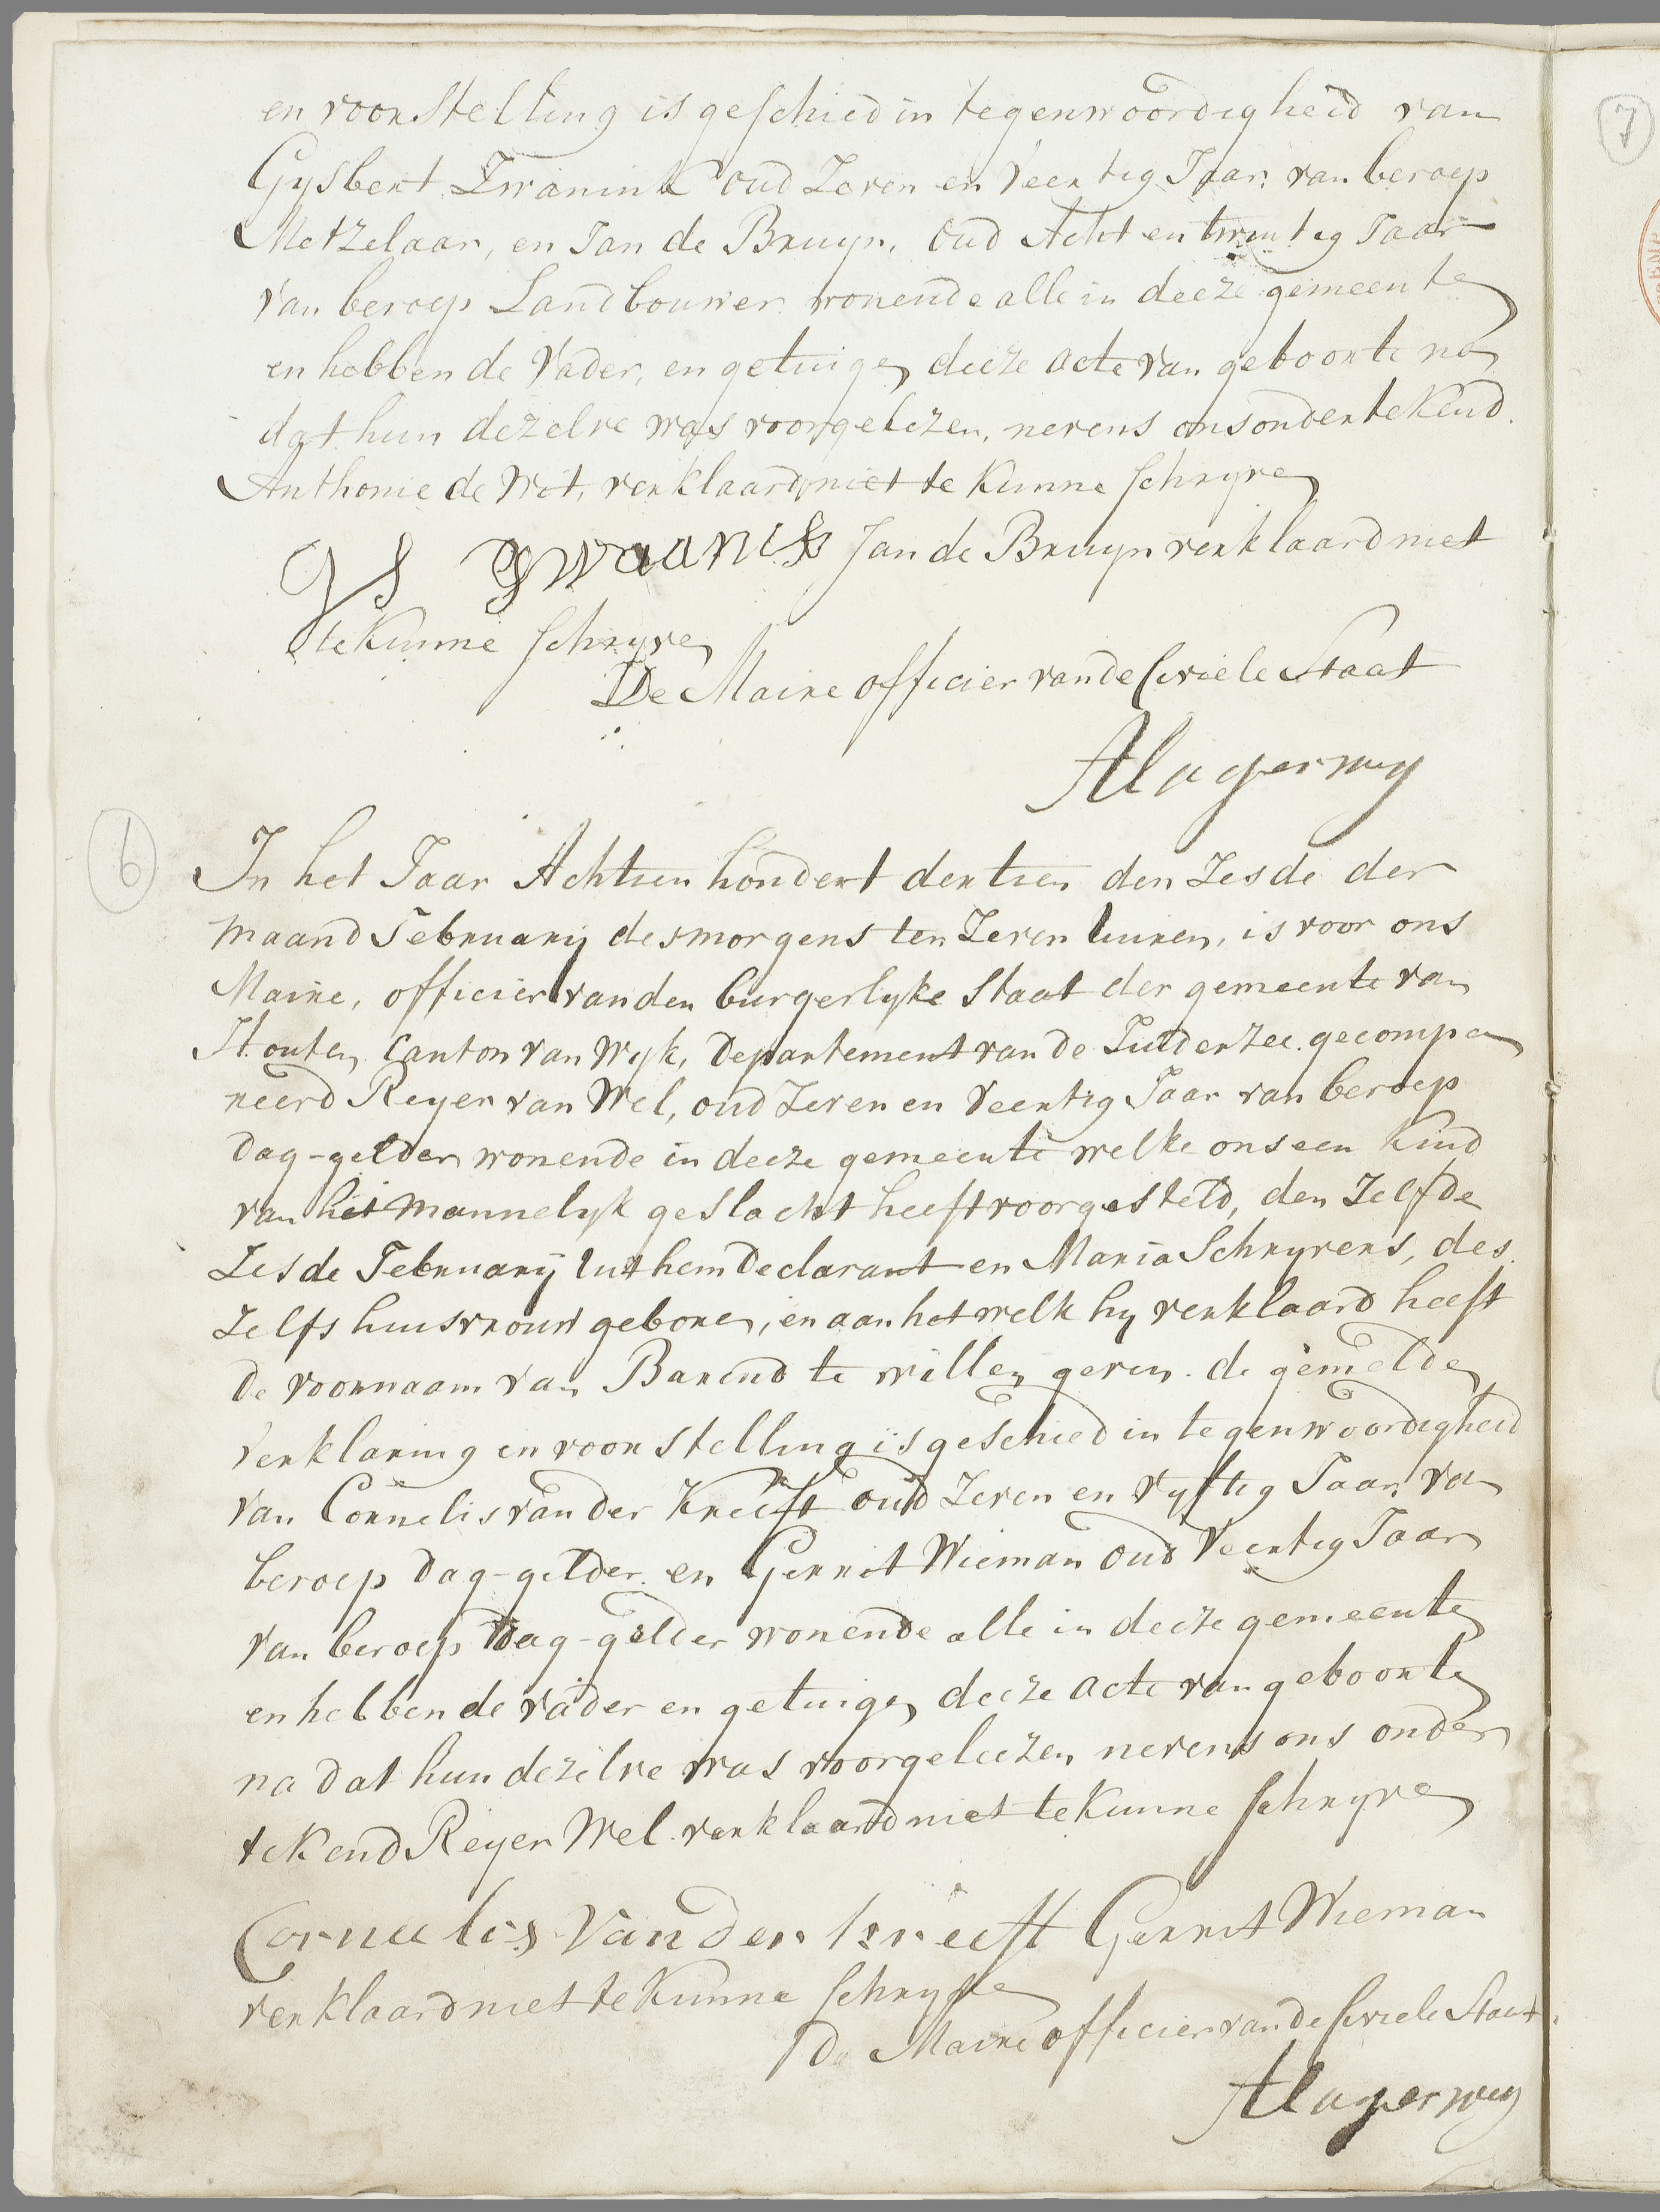 en voorstelling is geschied in tegenwoordigheid van
Gysbert Zwanink oud Zeven en Veertig Jaar van beroep
Metzelaar, en Jan de Bruyn, oud Acht en twintig Jaar
van beroep Landbouwer wonende alle in deeze gemeente
en hebben de Vader, en getuigen deeze acte van geboorte na
dat hun dezelve was voorgelezen, nevens ons ondertekend.
Anthonie de Wit, verklaard niet te kunne schryve
Gs Zwaanik Jan de Bruyn verklaard niet
te kunne schryve
De Maire officier van de Civiele Staat
Alagerwey
6
In het Jaar Achtien hondert dertien den Zesde der
maand February des morgens ten Zeven uuren, is voor ons
Maire, officier van den burgerlyke Staat der gemeente van
Houten Canton van Wyk, Departement van de Zuiderzee gecompa
reerd Reyer van Wel, oud Zeven en Veertig Jaar van beroep
Dag-gelder wonende in deeze gemeente welke ons een Kind
van het mannelyk geslacht heeft voorgesteld, den Zelfde
Zesde February uit hem Declarant en Maria Schryvers, des
Zelfs huisvrouw geboren, en aan het welk hy verklaard heeft
de voornaam van Barend te willen geven. de gemelde
Verklaring en voorstelling is geschied in tegenwoordigheid
van Cornelis van der Kreeft oud Zeven en vyftig Jaar van
beroep Dag-gelder en Gerrit Wieman oud Veertig Jaar
van beroep Dag-gelder wonende alle in deeze gemeente
en hebben de vader en getuigen deeze acte van geboorte
na dat hun dezelve was voorgeleezen nevens ons onder
tekend Reyer Wel verklaard niet te kunne schryve
Cornelis Van der kreeft Gerrit Wieman
verklaard niet te kunne schryve
De Maire officier van de Civiele Staat
Alagerwey
7